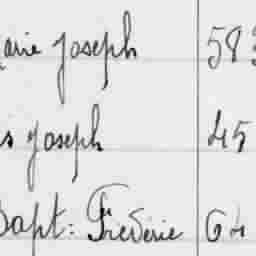 arie Joseph 583
is Joseph 45
Bapt: Frédéric 64